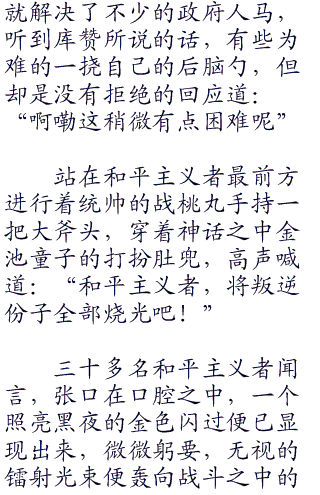 就解决了不少的政府人马，
听到库赞所说的话，有些为
难的一挠自己的后脑勺，但
却是没有拒绝的回应道：
“啊嘞这稍微有点困难呢”
站在和平主义者最前方
进行着统帅的战桃丸手持一
把大斧头，穿着神话之中金
池童子的打扮肚兜，高声喊
道：“和平主义者，将叛逆
份子全部烧光吧！”
三十多名和平主义者闻
言，张口在口腔之中，一个
照亮黑夜的金色闪过便已显
现出来，微微躬要，无视的
镭射光束便轰向战斗之中的